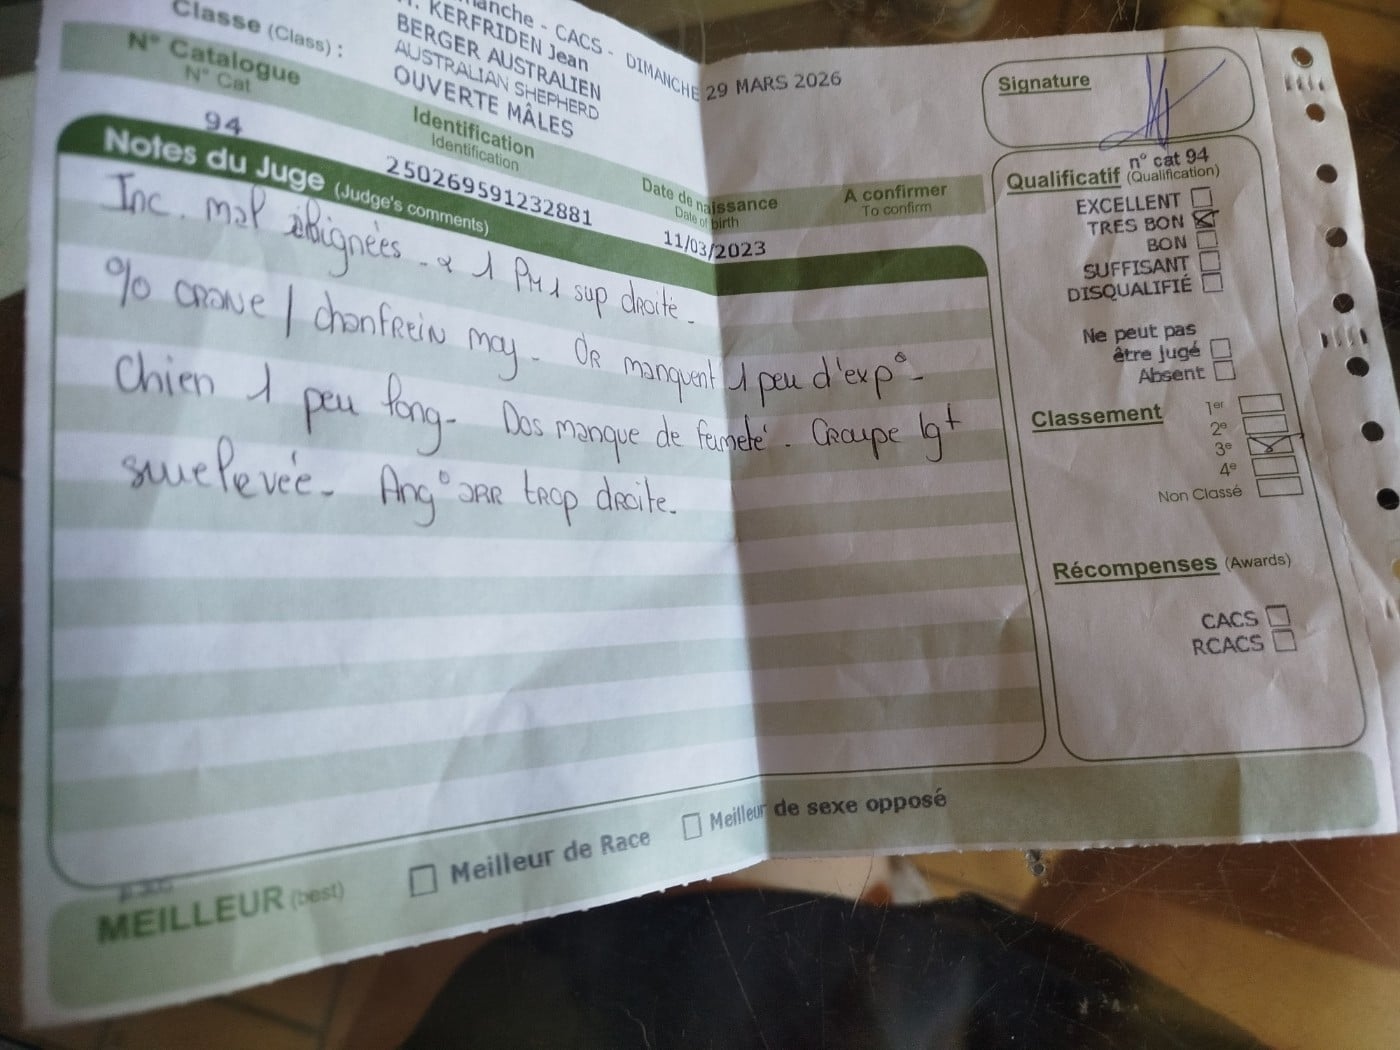 manche - CACS - DIMANCHE 29 MARS 2026
Classe (Class) :
M. KERFRIDEN Jean
BERGER AUSTRALIEN
AUSTRALIAN SHEPHERD
OUVERTE MÂLES
N° Catalogue
N° Cat
94
Identification
Identification
250269591232881
Date de naissance
Date of birth
11/03/2023
A confirmer
To confirm
Notes du Juge (Judge's comments)
Inc. mal alignées - 1 PM1 sup droite.
% crane / chanfrein moy - OR manquent 1 peu d'exp° -
Chien 1 peu long - Dos manque de fermeté - Croupe lgt
surelevée - Ang° arr trop droite.
Signature
n° cat 94
Qualificatif (Qualification)
EXCELLENT
TRES BON
BON
SUFFISANT
DISQUALIFIÉ
Ne peut pas
être jugé
Absent
Classement
1er
2e
3e
4e
Non Classé
Récompenses (Awards)
CACS
RCACS
MEILLEUR (best)
Meilleur de Race
Meilleur de sexe opposé